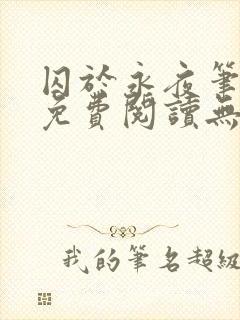 囚於永夜筆
免費閱讀無
我的筆名超級